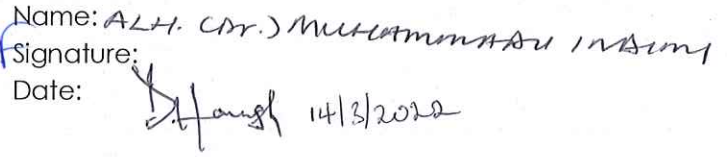 Name: ALH. (Dr.) MUHAMMADU INDIMI
Signature:
Date: 14/3/2022